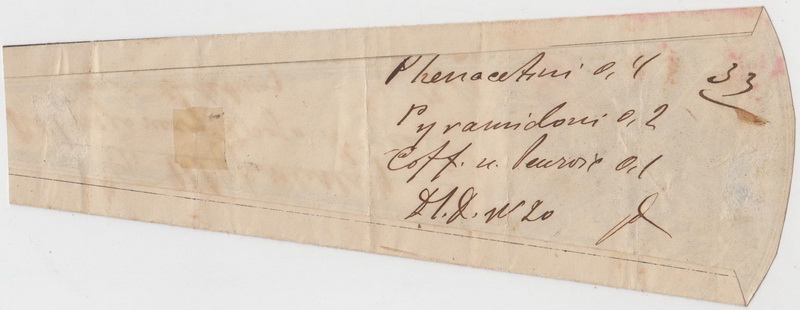 Phenacetini 0,4
33
Pyramidoni 0,2
Coff. n. benzoic 0,1
D. № 20